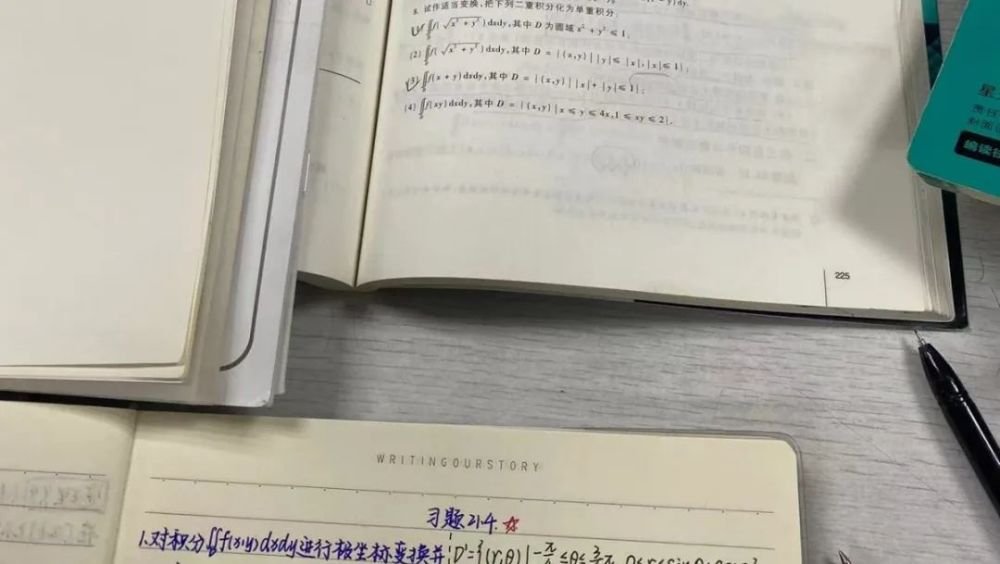 8. 试作适当变换,把下列二重积分化为单重积分:
(1) ∬f(√x²+y²)dxdy,其中 D 为圆域 x²+y²≤1;
(2) ∬f(√x²+y²)dxdy,其中 D={(x,y)||y|≤|x|,|x|≤1};
(3) ∬f(x+y)dxdy,其中 D={(x,y)||x|+|y|≤1};
(4) ∬f(xy)dxdy,其中 D={(x,y)|x≤y≤4x,1≤xy≤2}.
225
星
责任
封面
编读
WRITINGOURSTORY
习题21.4.
1.对积分∬f(x,y)dxdy进行极坐标变换并
D'={(r,θ)|